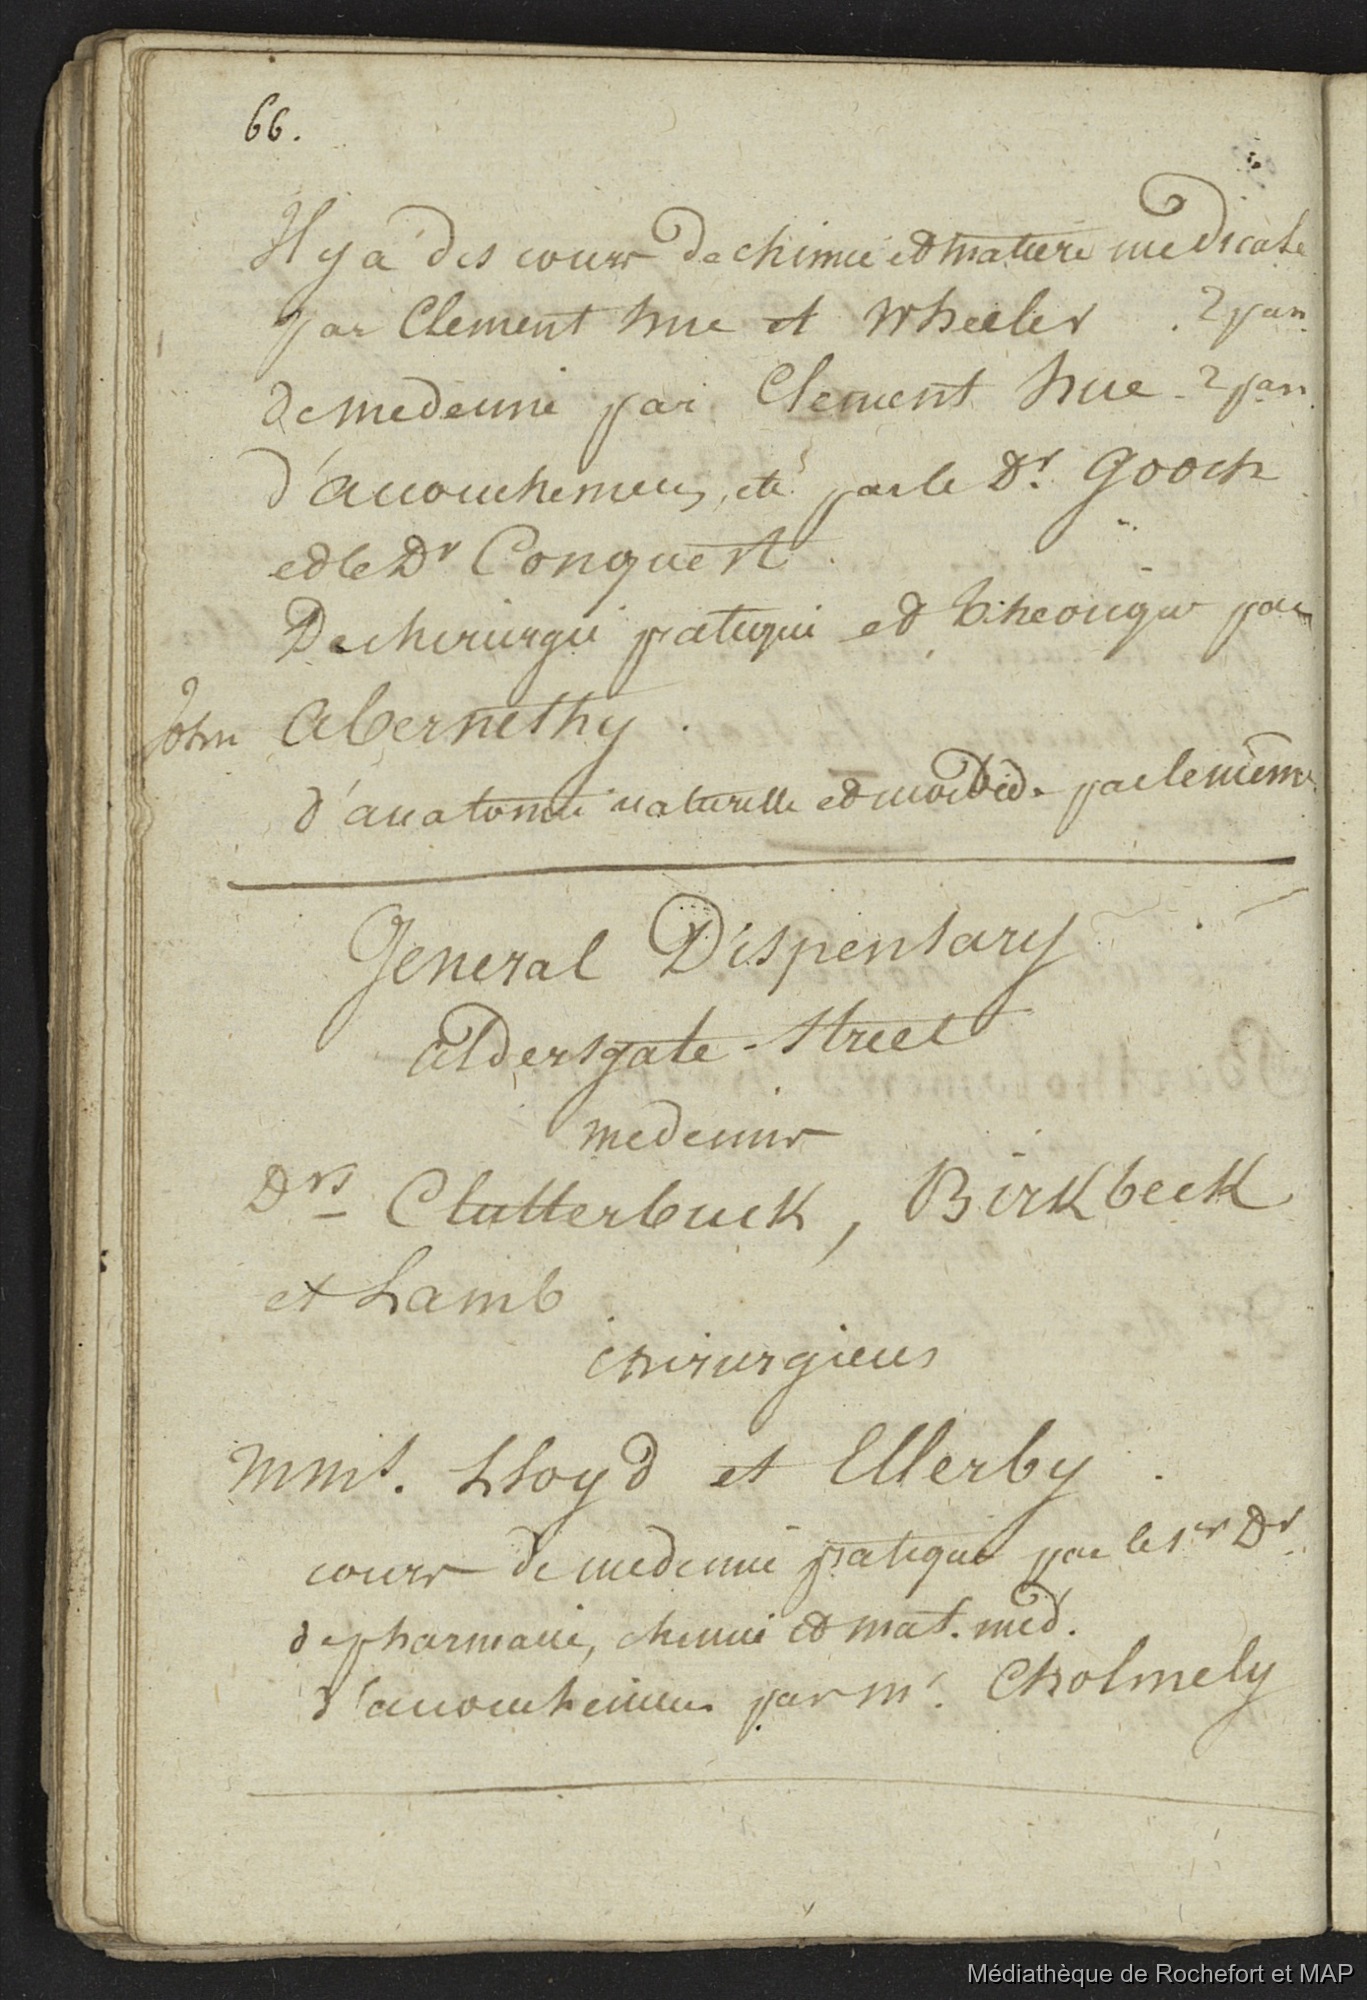 66.
Il y a des cours de chimie et matiere medicale
par Clement hue et Wheeler . 2 p an
de medecine par Clement hue - 2 p an
d'accouchemens, etc. par le Dr. Gooch
et le Dr Conquest.
De chirurgie pratique et théorique par
John Abernethy.
d'anatomie naturelle et morbide par le même
General Dispensary
aldersgate-Street
medecins
Drs Clutterbuck, Birkbeck
et Lamb
chirurgiens
mms. Lloyd et Ellerby.
cours de medecine pratique par le 1er Dr.
de pharmacie, chimie et mat. med.
d'accouchemens par mr. Cholmely
Médiathèque de Rochefort et MAP